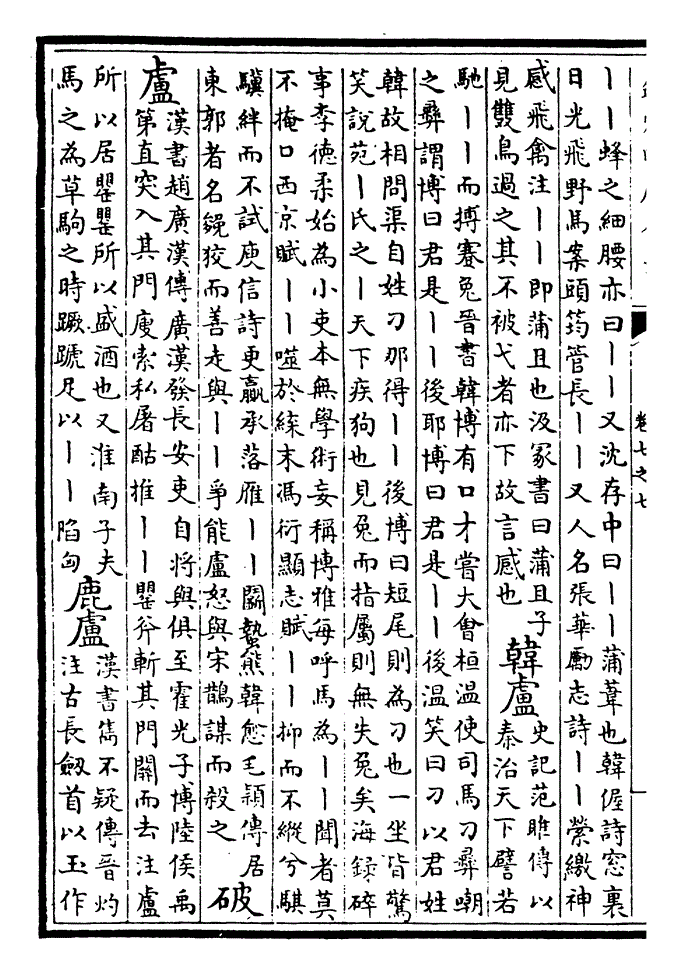 丨丨蜂之細腰亦曰丨丨又沈存中曰丨丨蒲葦也韓偓詩窓裏
日光飛野馬案頭筠管長丨丨又人名張華勵志詩丨丨縈繳神
感飛禽注丨丨即蒲且也汲冡書曰蒲且子
見雙鳧過之其不被弋者亦下故言感也
韓盧
史記范雎傳以
秦治天下譬若
馳丨丨而搏蹇兎晉書韓博有口才嘗大會桓温使司馬刁彞嘲
之彞謂博曰君是丨丨後耶博曰君是丨丨後温笑曰刁以君姓
韓故相問渠自姓刁那得丨丨後博曰短尾則為刁也一坐皆驚
笑說苑丨氏之丨天下疾狗也見兎而指屬則無失兎矣海録碎
事李德柔始為小吏本無學術妄稱博雅每呼馬為丨丨聞者莫
不掩口西京賦丨丨噬於緤末馮衍顯志賦丨丨抑而不縱兮騏
驥絆而不試庾信詩更羸承落雁丨丨鬬蟄熊韓愈毛頴傳居
東郭者名㕙狡而善走與丨丨爭能盧怒與宋鵲謀而殺之
破
盧
漢書趙廣漢傳廣漢發長安吏自將與俱至霍光子博陸侯禹
第直突入其門廋索私屠酤推丨丨罌斧斬其門關而去注盧
所以居罌罌所以盛酒也又淮南子夫
馬之為草駒之時蹶蹏足以丨丨陷匈
鹿盧
漢書雋不疑傳晉灼
注古長劔首以玉作
卷七之七